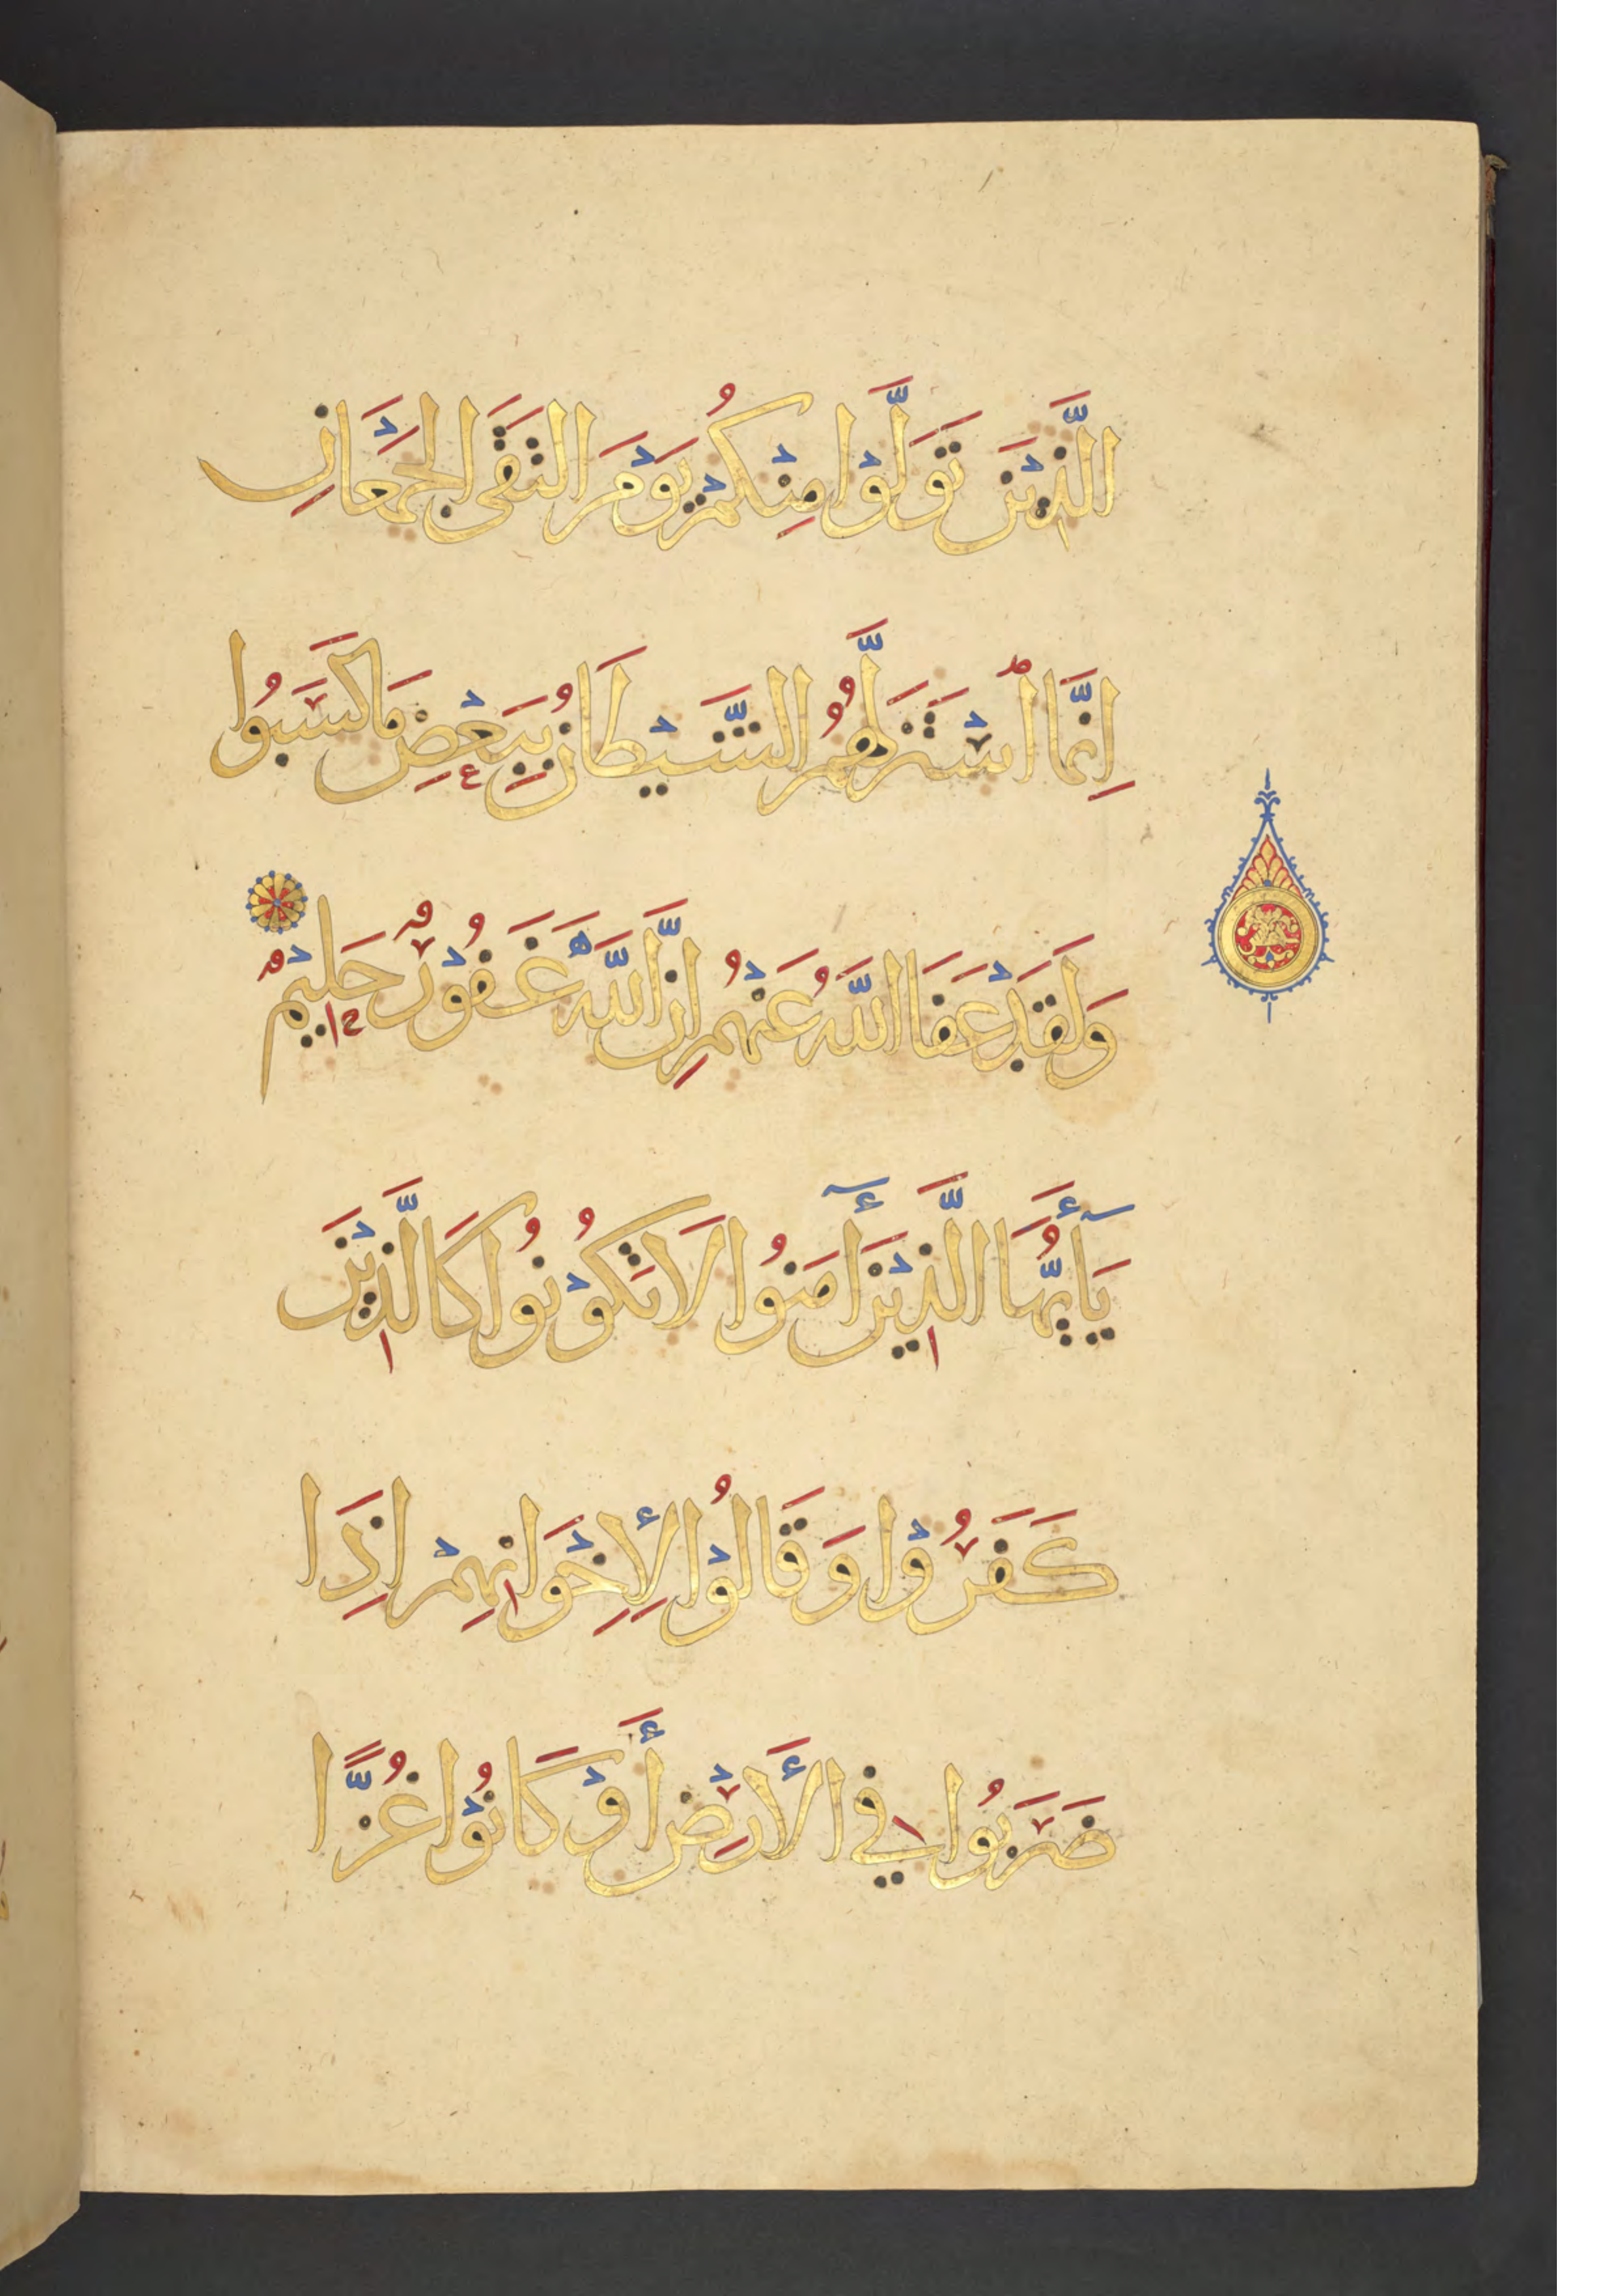 الَّذِيْنَ تَوَلَّوْا مِنْكُمْ يَوْمَ الْتَقَى الْجَمْعَانِ
اِنَّمَا اسْتَزَلَّهُمُ الشَّيْطَانُ بِبَعْضِ مَا كَسَبُوا
وَلَقَدْ عَفَا اللَّهُ عَنْهُمْ اِنَّ اللَّهَ غَفُوْرٌ حَلِيْمٌ
يَآأَيُّهَا الَّذِيْنَ أٓمَنُوا لَا تَكُوْنُوا كَالَّذِيْنَ
كَفَرُوْا وَقَالُوْا لِإِخْوَانِهِمْ اِذَا
ضَرَبُوا فِي الْأَرْضِ أَوْ كَانُوْا غُزًّا